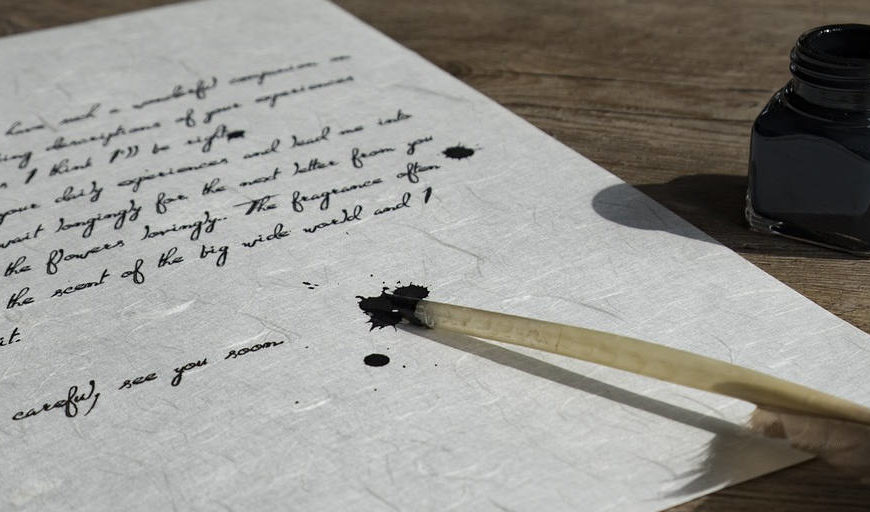 have such a wonderful companion in
ing descriptions of your experiences
I think I'll be right
your daily experiences and lead me into
wait longingly for the next letter from you
the flowers lovingly. The fragrance often
the scent of the big wide world and I
it.
careful, see you soon